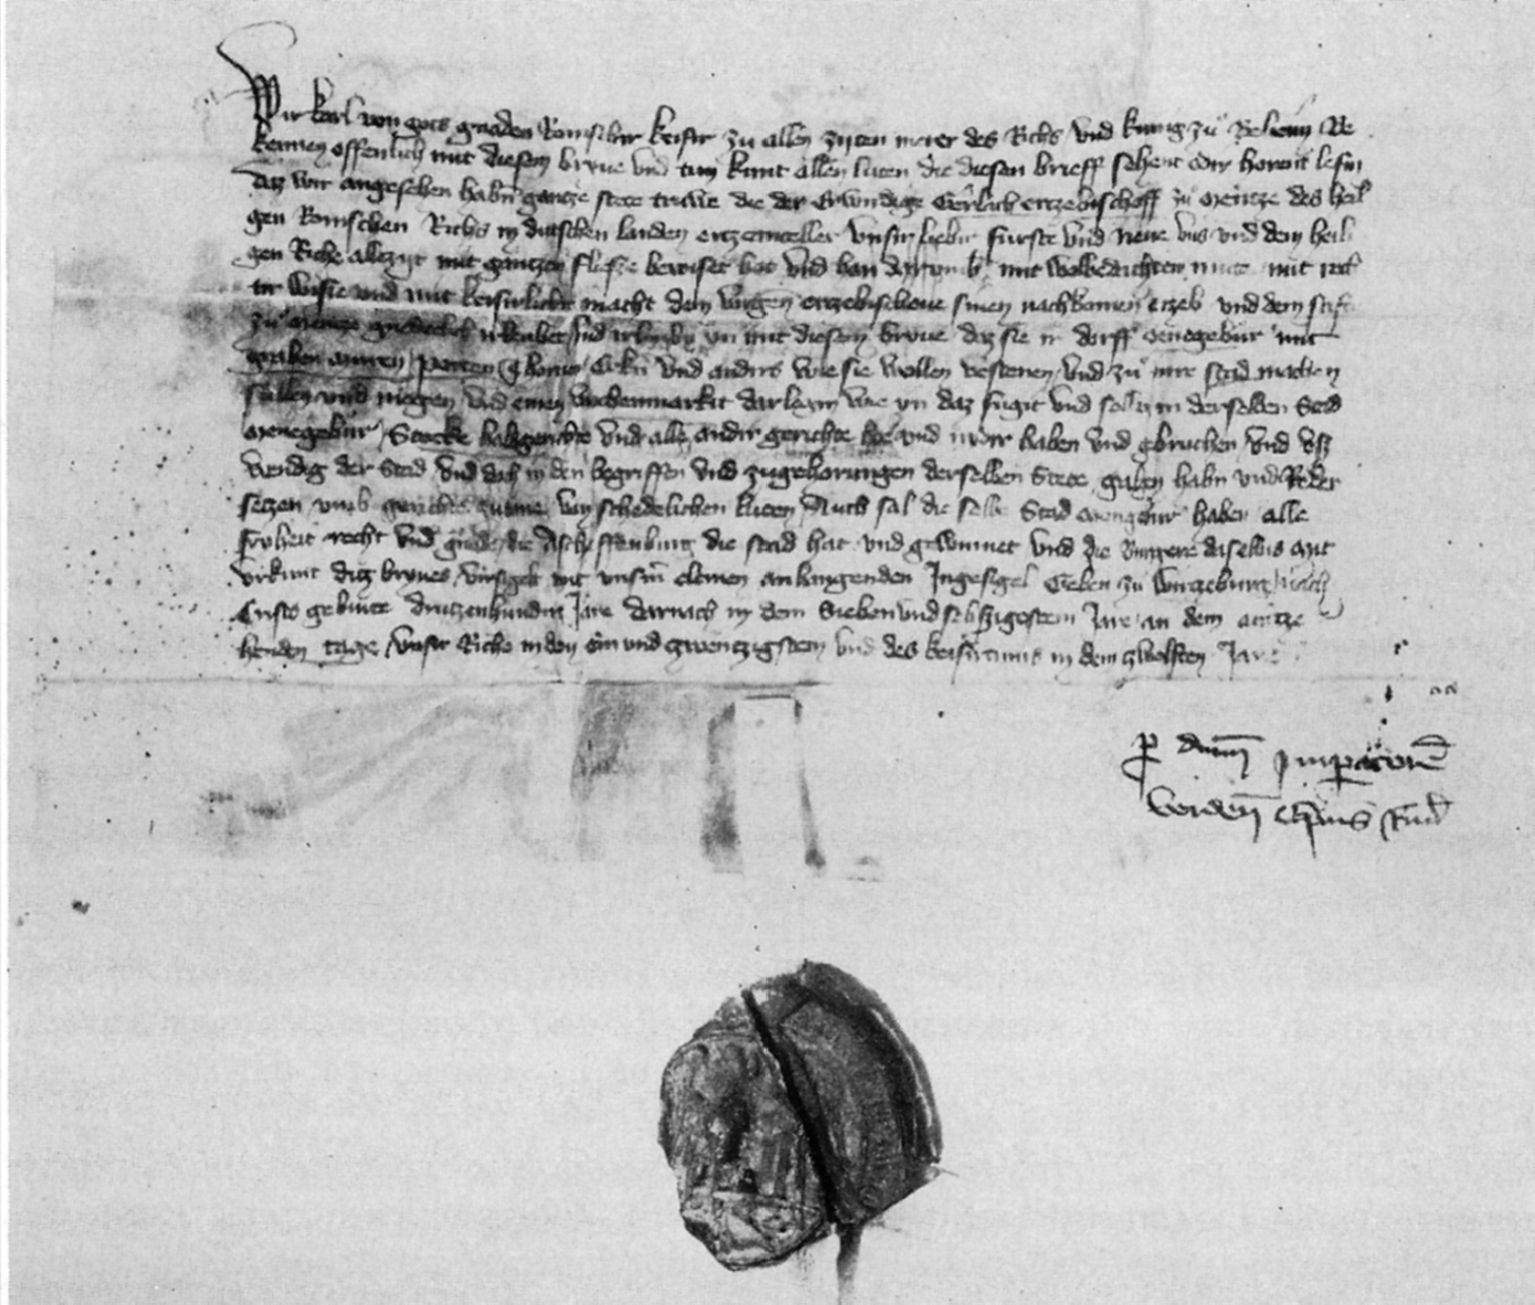 Wir karl von gots gnaden Romischer keiser zu allen zijten merer des Richs vnd kunig zu Beheim Be
kennen offenlich mit diesem brieue vnd tun kunt allen luten die diesen brieff sehent odir horent lesin
daz wir angesehen habin gantze stete truwe die der Erwirdige Gerlach ertzebischoff zu Meintze des heil
gen Romischen Richs in dutschen landen ertzcanceller vnsir liebir furste vnd neue vns vnd dem heil
gen Riche allezijt mit gantzem flisse bewiset hat vnd han darvmb mit wolbedachten mute mit rech
tir wisse vnd mit keisirlichir macht dem vorgen ertzebischoue sinen nachkomen ertzeb vnd dem stift
zu Meintze gnedeclich irleubet vnd irleuben yn mit diesem brieue daz sie ir dorff Menegebur mit
graben muren porten Erkir vnd andirs wie sie wollen vestenen vnd zu eire stad machen
sullen vnd mogen vnd einen wochenmarkit dar legin wie yn daz fugit vnd sollen in derselben Stad
Menegebur Stocke halsgerichte vnd alle andir gerichte hoe vnd nydir haben vnd gbruchen vnd vsz
wendig der Stad vnd doch in den begriffen vnd zugehorungen derselben Stete galgen habin vnd Reder
setzen vmb gerichte zutune von schedelichen luten Auch sal die selbe Stad Menegebur haben alle
friheit recht vnd gnade die Aschaffenburg die stad hat vnd gewinnet vnd die Burgere daselbis Mit
vrkunt ditz brieues virsigelt mit vnsirm cleinen anhangenden Ingesigel Geben zu Wirtzeburg nach
Cristo geburte drutzenhundirt Jare darnach in dem Siebenvndsehszigestem Jare an dem achtze
henden tage vnsir Riche in den ein vnd zwentzigstem vnd des keisirtums in dem zwelften Jare
p dnm Imperatore